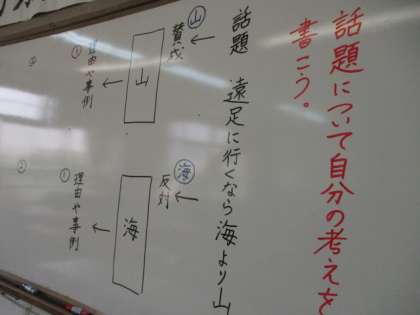 話題について自分の考えを
書こう。
話題　遠足に行くなら海より山
山
賛成
山
①理由や事例
②
海
反対
海
①理由や事例
②